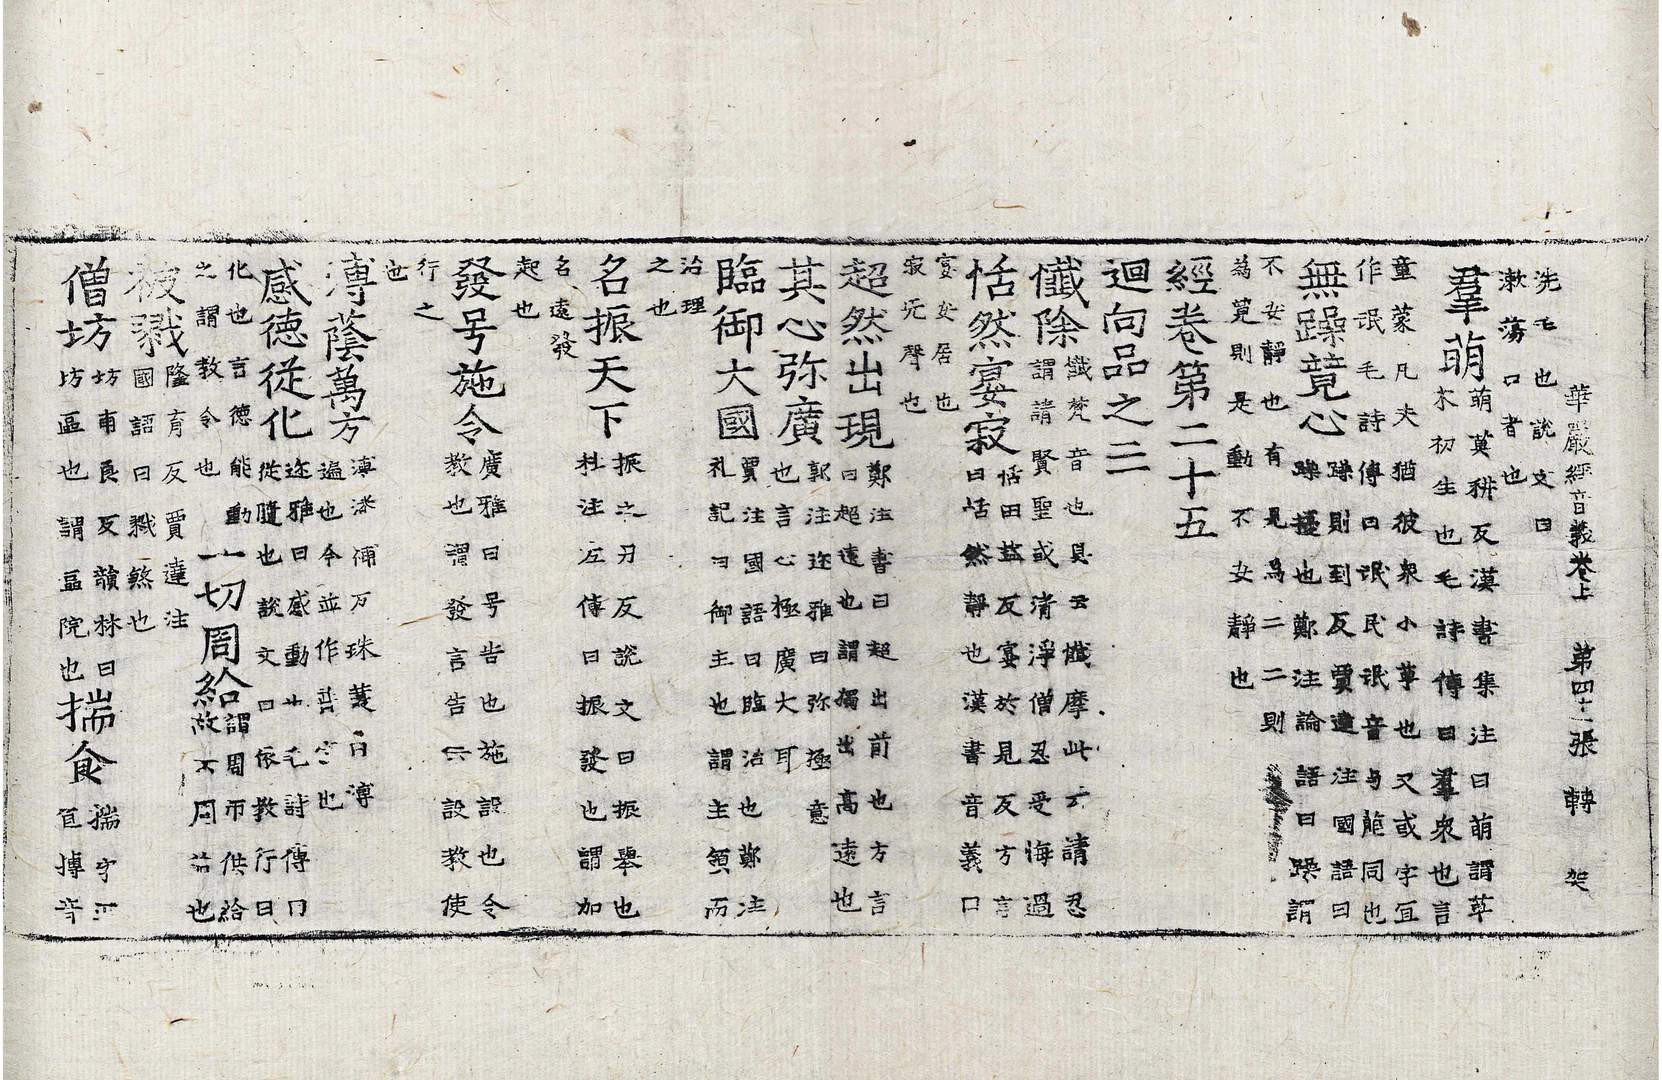 華嚴經音義卷上 第四十一張 轉
洗毛也說文曰
漱蕩口者也
羣萌
萌莫耕反漢書集注曰萌謂草
木初生也毛詩傳曰羣衆也言
童蒙凡夫猶彼衆小草也又或字宜
作氓毛詩傳曰氓民氓音与萠同也
無躁競心
躁則到反賈逵注國語曰
躁擾也鄭注論語曰躁謂
不安靜也有見為二二則
為競則是動不安靜也
經卷第二十五
迴向品之三
懺除
懺梵音也具云懺摩此云請忍
謂請賢聖或清淨僧忍受悔過
恬然宴寂
恬田益反宴於見反方言
曰恬然靜也漢書音義曰
宴安居也
寂无聲也
超然出現
鄭注書曰超出前也方言
曰超遠也謂獨出高遠也
其心弥廣
郭注迩雅曰弥極意
也言心極廣大耳
臨御大國
賈注國語曰臨治也鄭注
礼記曰御主也謂主領而
治理
之也
名振天下
振之刃反說文曰振舉也
杜注左傳曰振發也謂加
名遠發
起也
發号施令
廣雅曰号告也施設也令
教也謂發言告示設教使
行之
也
溥蔭萬方
溥滂浦反珠叢曰溥
遍也今並作普字也
感德從化
迩雅曰感動也毛詩傳曰
從隨也說文曰依教行曰
化也言德能動
之謂教令也
一切周給
謂周帀供給
故不周也
被戮
隆育反賈逵注
國語曰戮煞也
僧坊
坊甫良反韻林曰
坊區也謂區院也
揣食
揣字正
宜摶音